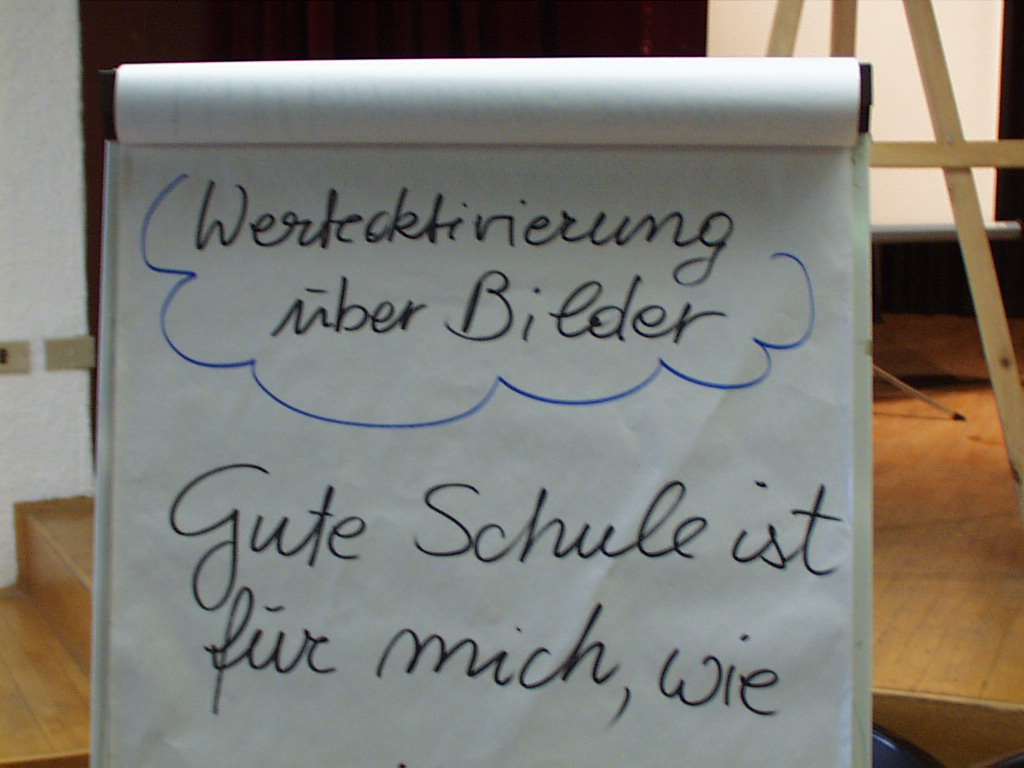 Werteaktivierung
über Bilder
Gute Schule ist
für mich, wie